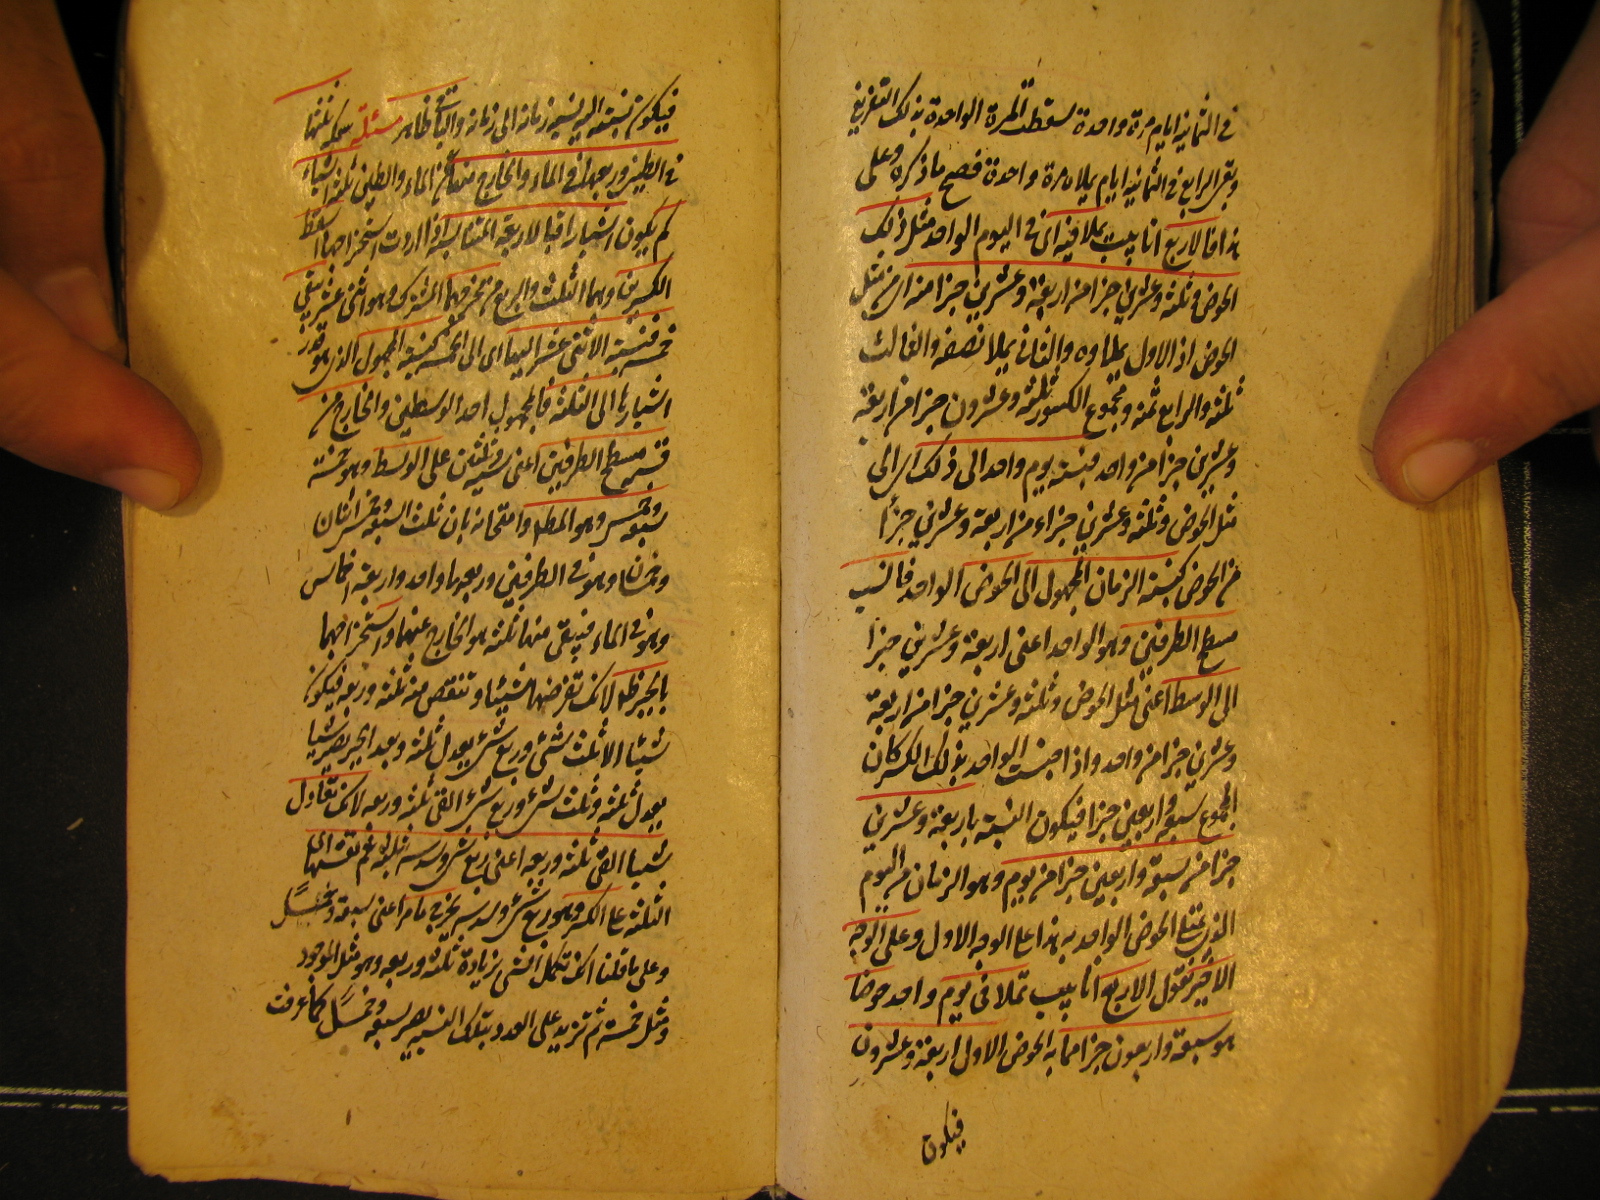 في الثمانية ايام مرة واحدة سقطت المرة الواحدة بذلك التفريغ
وبقى الرابع في الثمانية ايام يملاه مرة واحدة فصح ما ذكره وعلى
هذا فالاربع انابيب يملا فيه اى في اليوم الواحد مثل ذلك
الحوض و ثلثة وعشرين جزا من اربعة وعشرين جزا منه اى من مثل
الحوض اذ الاول يملاوه والثانى يملا نصفه والثالث
ثلثه والرابع ثمنه ومجموع الكسور ثلثة وعشرون جزا من اربعة
وعشرين جزا من واحد فنسبة يوم واحد الى ذلك اى الى
مثل الحوض وثلثة وعشرين جزاء من اربعة وعشرين جزأ
من الحوض كنسبة الزمان المجهول الى الحوض الواحد فانسب
مسطح الطرفين وهو الواحد اعنى اربعة وعشرين جزا
الى الوسط اعنى مثل الحوض وثلثة وعشرين جزا من اربعة
وعشرين جزا من واحد واذا جنست الواحد بذلك الكسر كان
المجموع سبعة واربعين جزا فيكون النسبة باربعة وعشرين
جزا من سبعة واربعين جزا من يوم وهو الزمان من اليوم
الذى يمتلى الحوض الواحد به هذا على الوجه الاول وعلى الوجه
الاخير نقول الاربع انابيب تملا فى يوم واحد حوضا
هو سبعة واربعون جزا مما به الحوض الاول اربعة وعشرون
فيكون
فيكون نسبته اليه كنسبة زمانه الى زمانه والباقى ظاهر مسئلة سمكة ثلثها
فى الطين وربعها فى الماء والخارج منها ثلثة اشبار
كم يكون اشبارا فبالاربعة المتناسبة اذا اردت استخراجها اسقط
الكسرين وهما الثلث والربع من مخرجهما المشترك وهو اثنى عشر يبقى
خمسة فنسبة الاثنى عشر اليها اى الى الخمسة كنسبة المجهول الذى هو قدر
اشبارها الى الثلثة فالمجهول احد الوسطين والخارج من
قسمة مسطح الطرفين اعنى ستة وثلثين على الوسط وهو خمسة
سبعة وخمس وهو المطلوب وامتحانه بان ثلث السبعة وخمس اثنان
وخمسان وهو فى الطرفين وربعها واحد واربعة اخماس
وهو فى الماء فيبقى منها ثلثة هو الخارج عنهما واستخراجها
بالجبر ظاهر لانك تفرضها شيئا وتنقص منه ثلثه وربعه فيكون
شيئا الا ثلث شئ وربع شئ يعدل ثلثة وبعد الجبر يصير شيئا
يعدل ثلثة وثلث شئ وربع شئ القى ثلثه وربعه لانك تعادل
شيئا القى ثلثه وربعه اعنى ربع شئ وسدسه بثلثة ثم تقسمها اى
الثلثة على الكسر وهو ربع شئ وسدسه يخرج ما مر اعنى سبعة وخمسا
وعلى ما قلنا انك تكمل الشئ بزيادة ثلثه وربعه وهو مثل الموجود
ومثل خمسه ثم تزيد على العدد بتلك النسبة يصير سبعة وخمسا كما عرفت